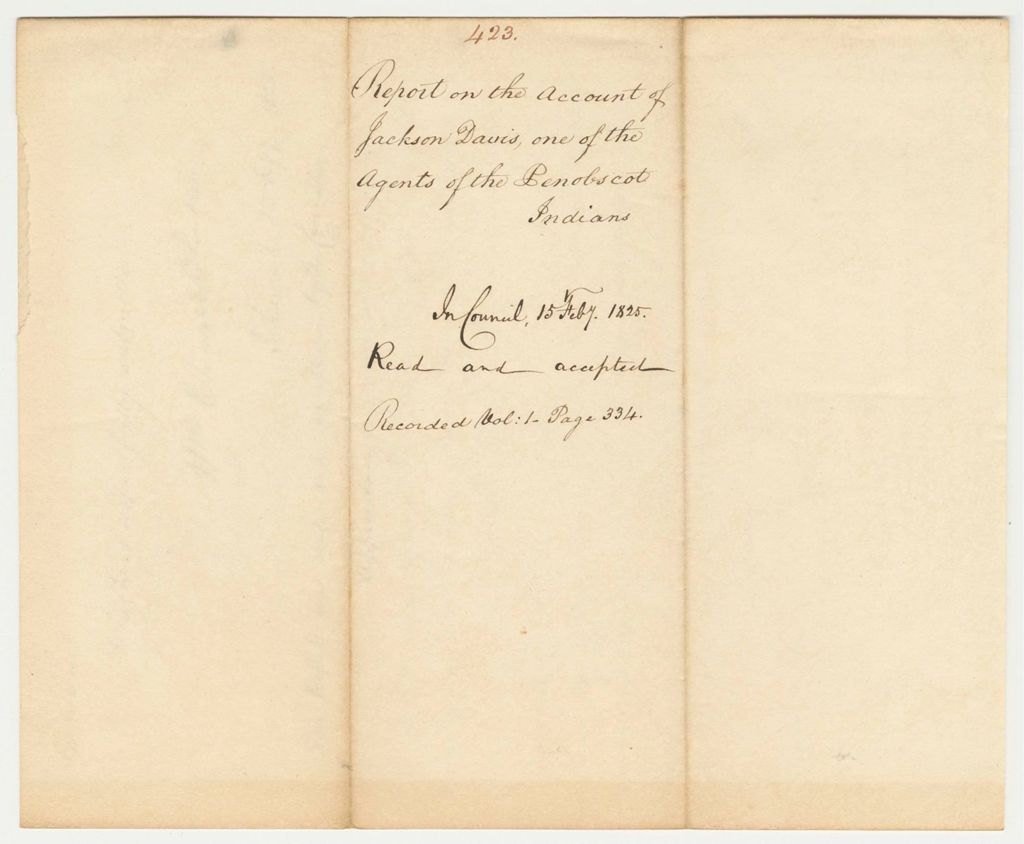 423.
Report on the Account of
Jackson Davis, one of the
Agents of the Penobscot
Indians
In Council, 15 Feby. 1825.
Read and accepted
Recorded Vol: 1- Page 334.